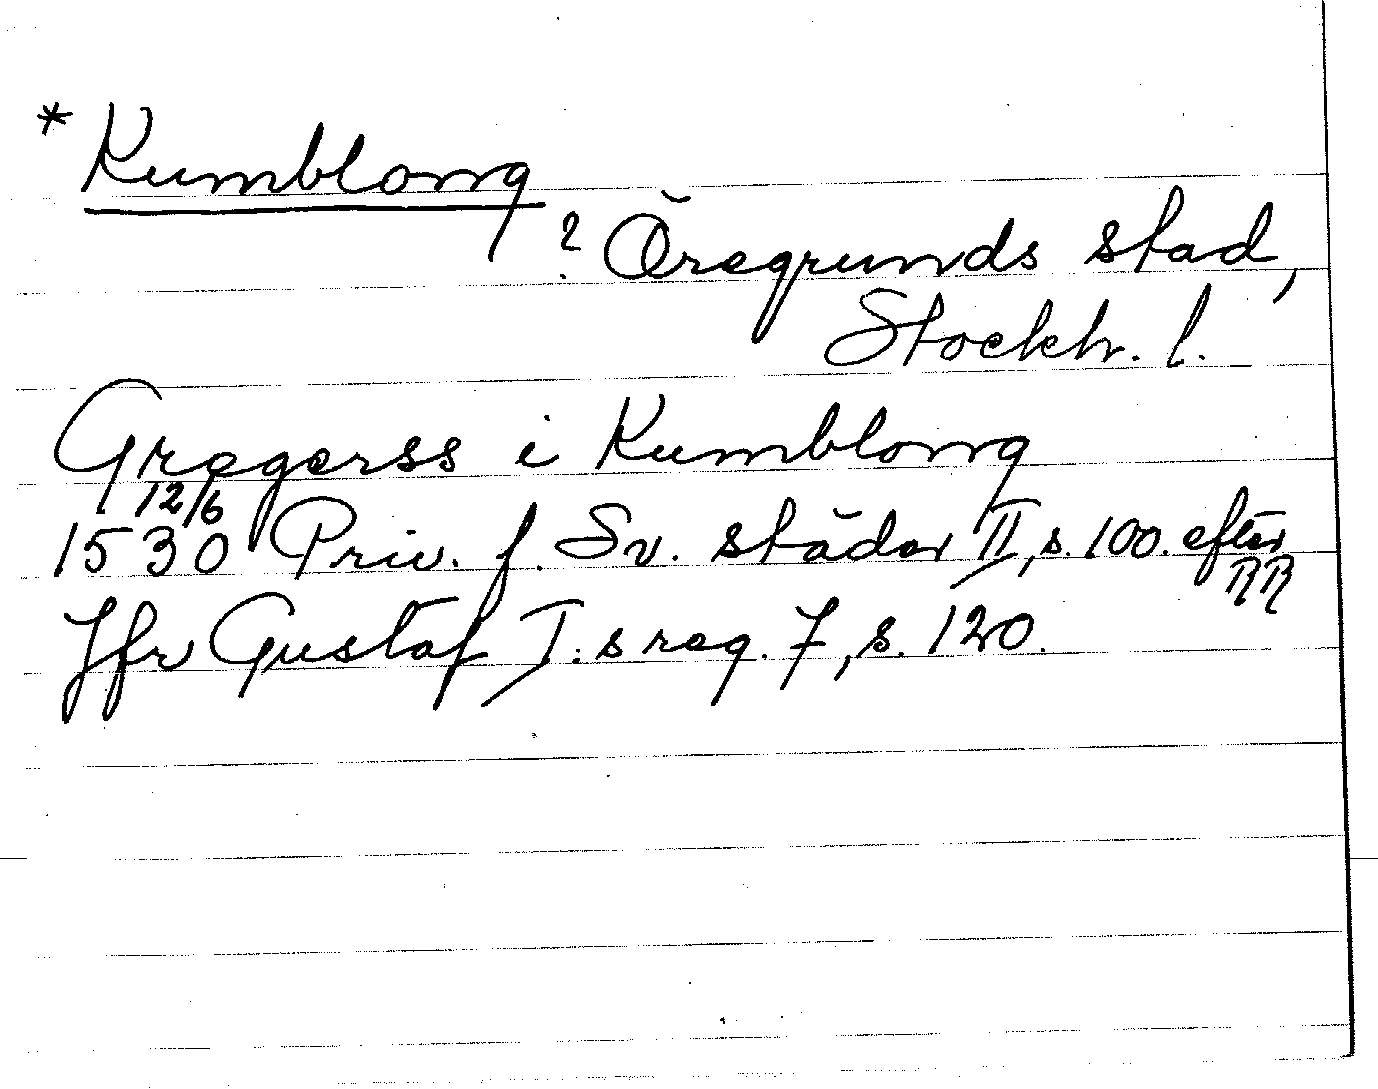 * Kumblong
? Öregrunds stad,
Stockh. l.
Gregerss i Kumblong
12/6
1530 Priv. f. Sv. städer II, s. 100. efter
RR
Jfr Gustaf I:s reg. 7, s. 120.